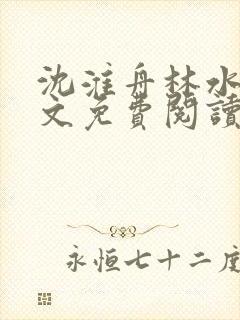 沈淮舟林水
文免費閱讀
永恒七十二度